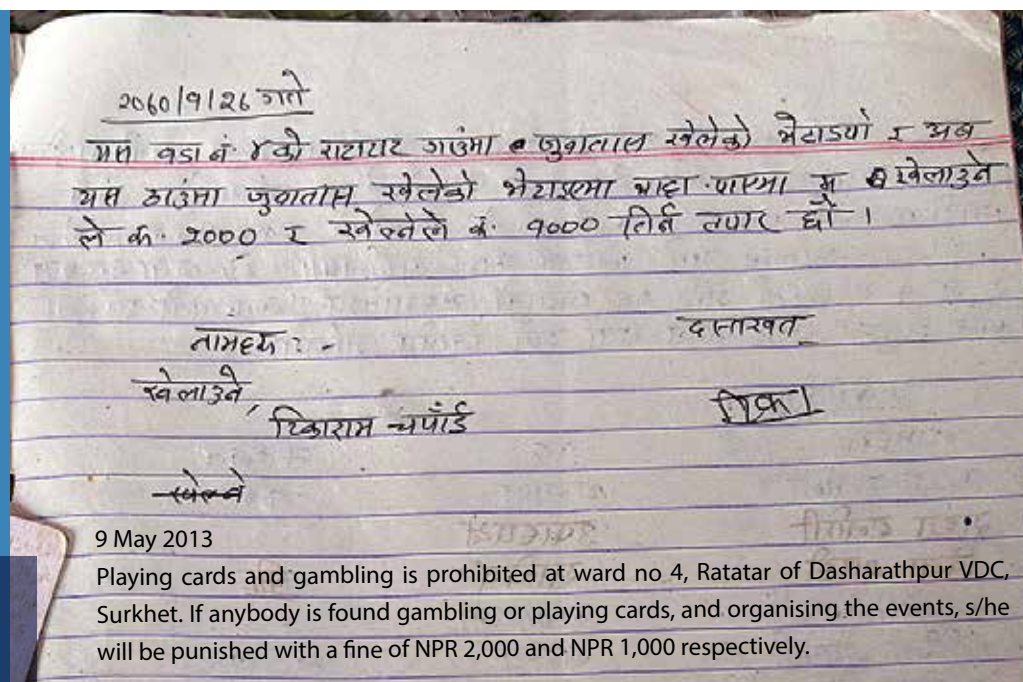 २०६०।९।२६ गते
यस वडा नं ४ को राटाटार गाउंमा जुवातास खेलेको भेटाइयो र अब
यस ठाउंमा जुवातास खेलेको भेटाइएमा पाएमा म खेलाउने
ले रु. २००० र खेल्नेले रु. १००० तिर्न तयार छौं ।
दस्तखत
खेलाउने,
टिकाराम चपाँई
खेल्ने
9 May 2013
Playing cards and gambling is prohibited at ward no 4, Ratatar of Dasharathpur VDC,
Surkhet. If anybody is found gambling or playing cards, and organising the events, s/he
will be punished with a fine of NPR 2,000 and NPR 1,000 respectively.